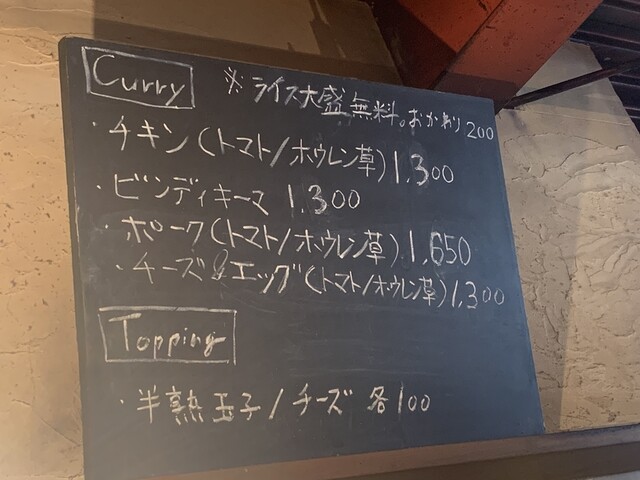 Curry
※ライス大盛無料。おかわり200
・チキン(トマト/ホウレン草)1,300
・ビンディキーマ 1,300
・ポーク(トマト/ホウレン草)1,650
・チーズ&エッグ(トマト/ホウレン草)1,300
Topping
・半熟玉子/チーズ 各100